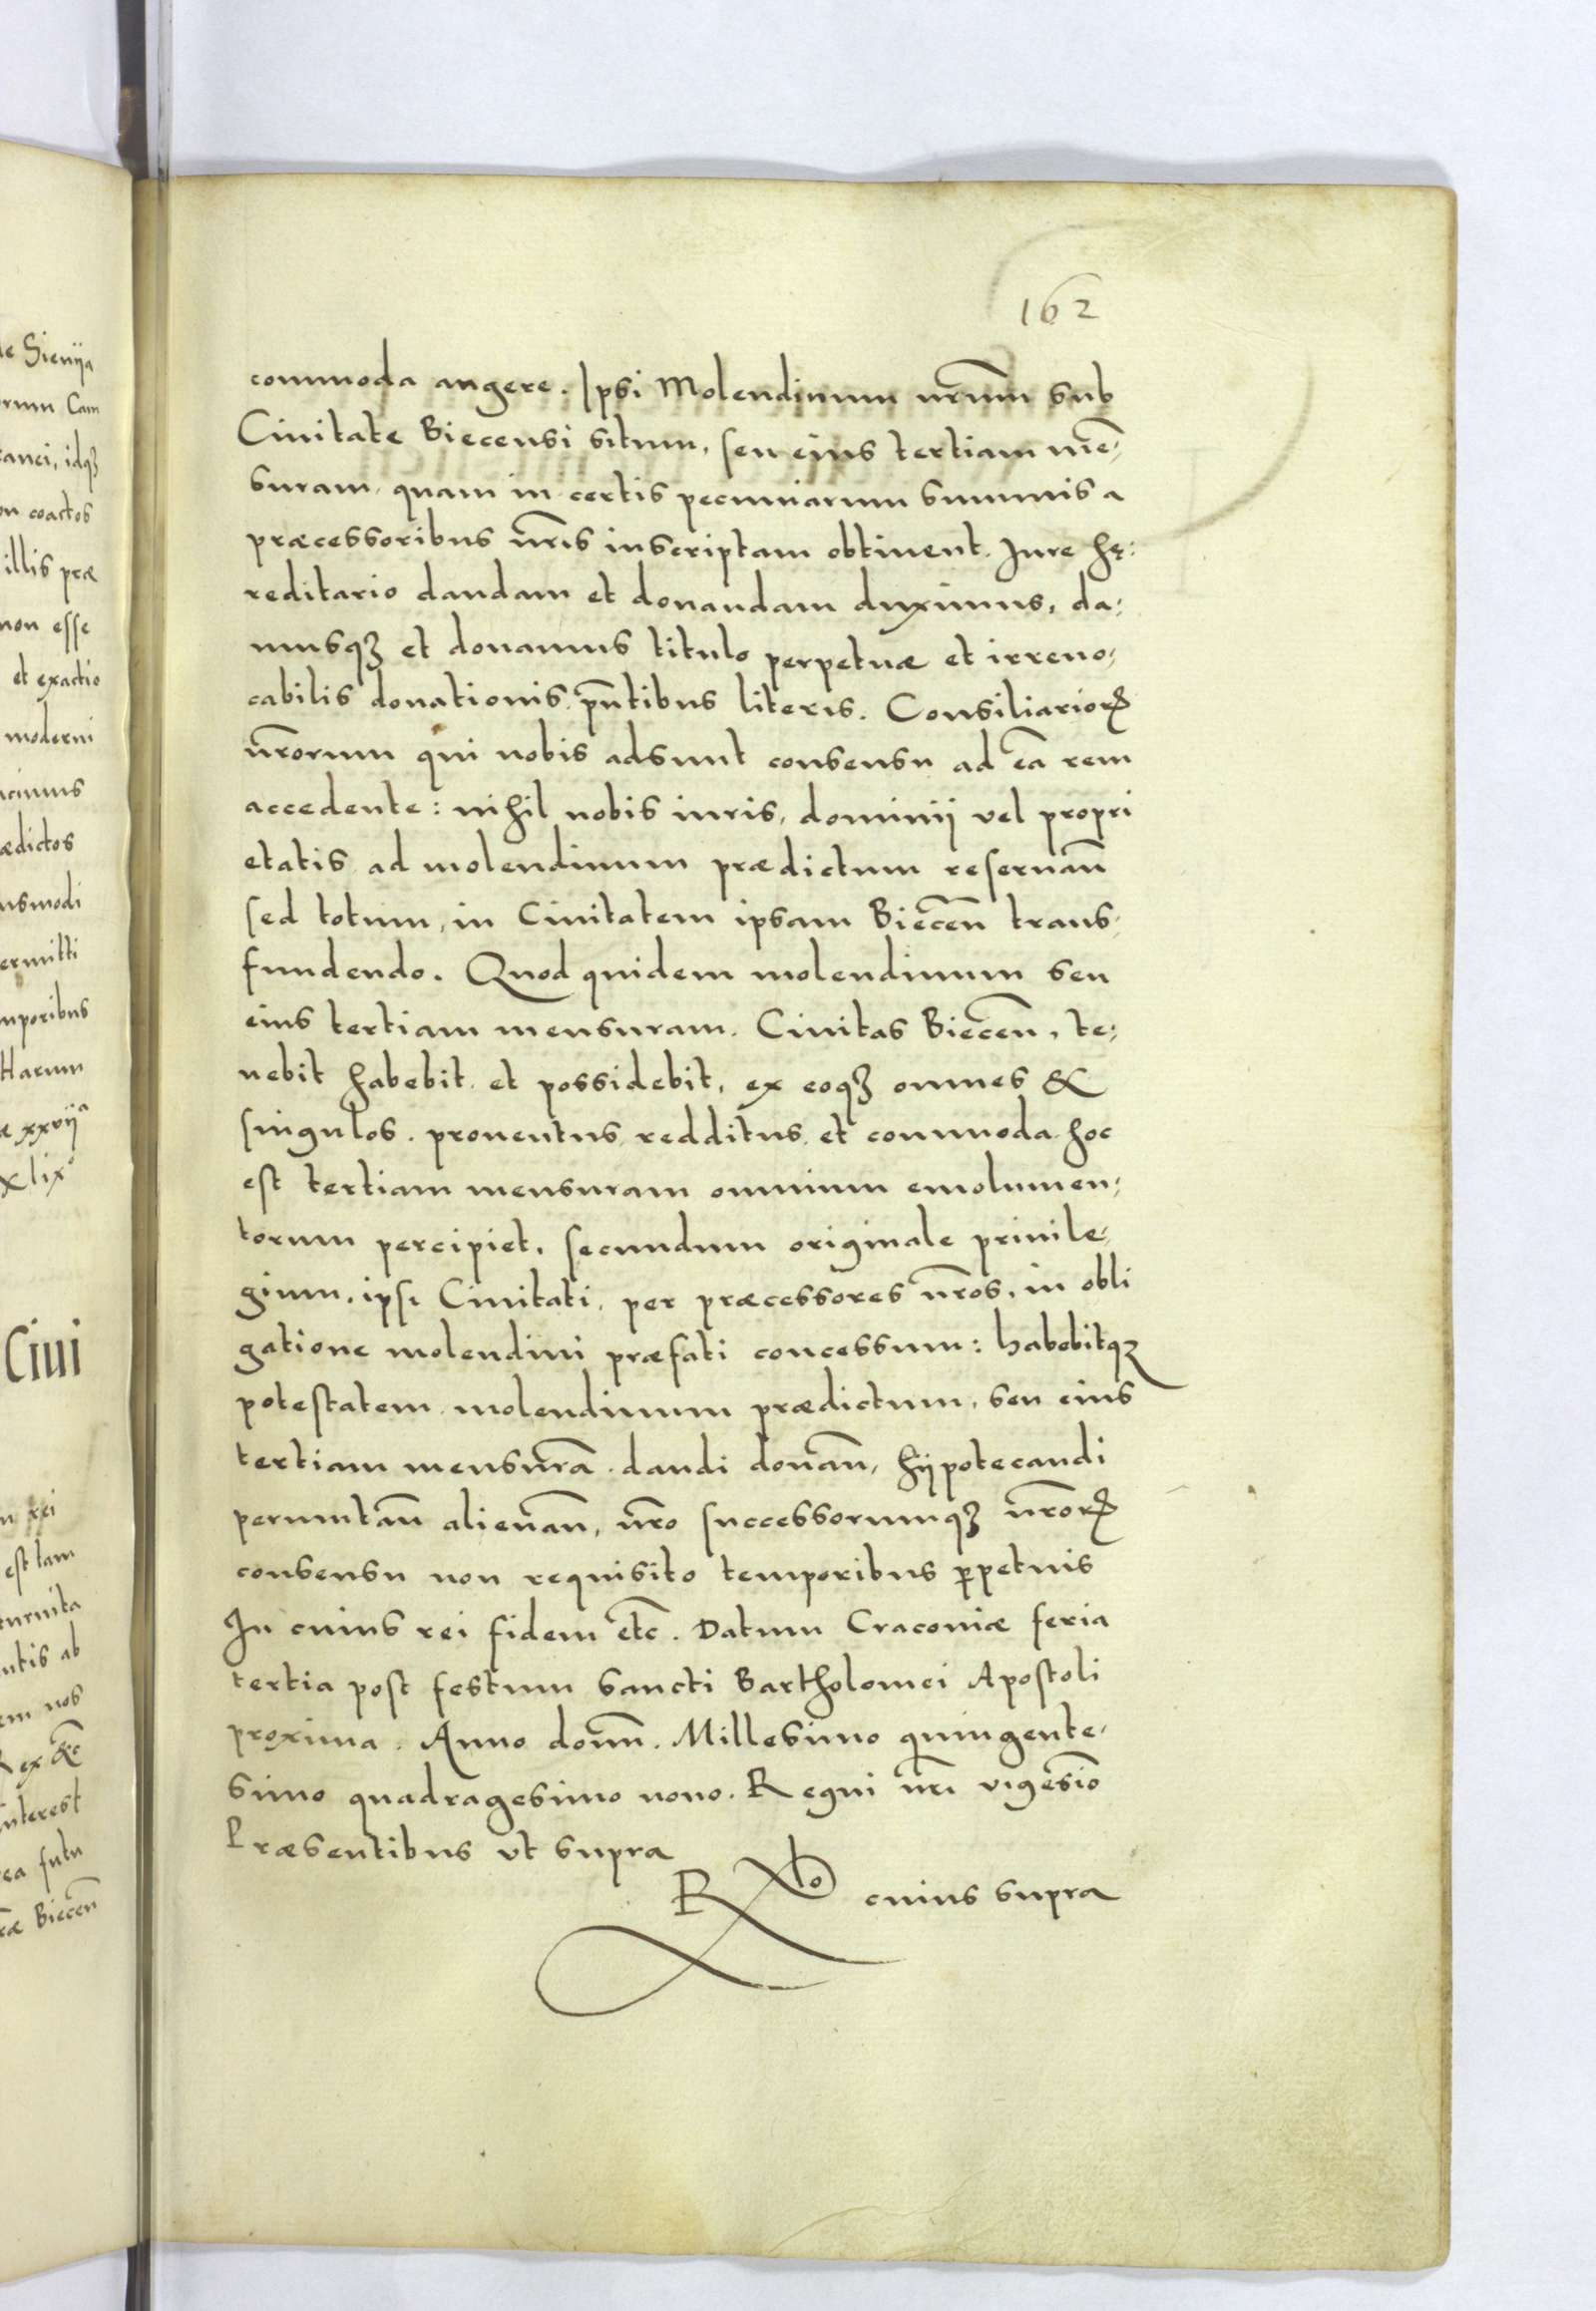 162
commoda augere. Ipsi Molendinum nr̃um sub
Ciuitate Biecensi situm, seu eius tertiam mẽ,
suram, quam in certis pecuniarum summis a
præcessoribus nr̃is inscriptam obtinent. Jure hę:
reditario dandam et donandam duximus, da:
musqꝫ et donamus titulo perpetuæ et irreuo,
cabilis donationis. pñtibus literis. Consiliarioꝝ
nr̃orum qui nobis adsunt consensu ad eã rem
accedente: nihil nobis iuris, dominij vel propri
etatis ad molendinum prædictum reseruañ
sed totum, in Ciuitatem ipsam Biecen̄ trans,
fundendo. Quod quidem molendinum seu
eius tertiam mensuram. Ciuitas Biecen̄, te:
nebit habebit et possidebit, ex eoqꝫ omnes &
singulos. prouentus redditus et commoda hoc
est tertiam mensuram omnium emolumen,
torum percipiet, secundum originale priuile,
gium, ipsi Ciuitati, per præcessores nr̃os, in obli
gatione molendini præfati concessum: habebitqꝫ
potestatem molendinum prædictum, seu eius
tertiam mensurã. dandi donañ, hÿpotecandi
permutañ alienañ, nr̃o successorumqꝫ nr̃oꝝ
consensu non requisito temporibus ꝑpetuis
In cuius rei fidem etc̃. Datum Cracouiæ feria
tertia post festum Sancti Bartholomei Apostoli
proxima. Anno domñ. Millesimo quingente,
simo quadragesimo nono. Regni nr̃i vigesĩo
Præsentibus vt supra
Rlo cuius supra
de Sienÿa
orum Cam
ranei, idqꝫ
on coactos
illis præ
non esse
et exactio
moderni
acimus
ædictos
usmodi
ermitti
mporibus
Harum
æ xxvijᵃ
xlixᵒ
Ciui
m rei
est tam
turnita
ntis ab
em nos
Rex &c̃
interest
ea futu
ræ Biecen̄